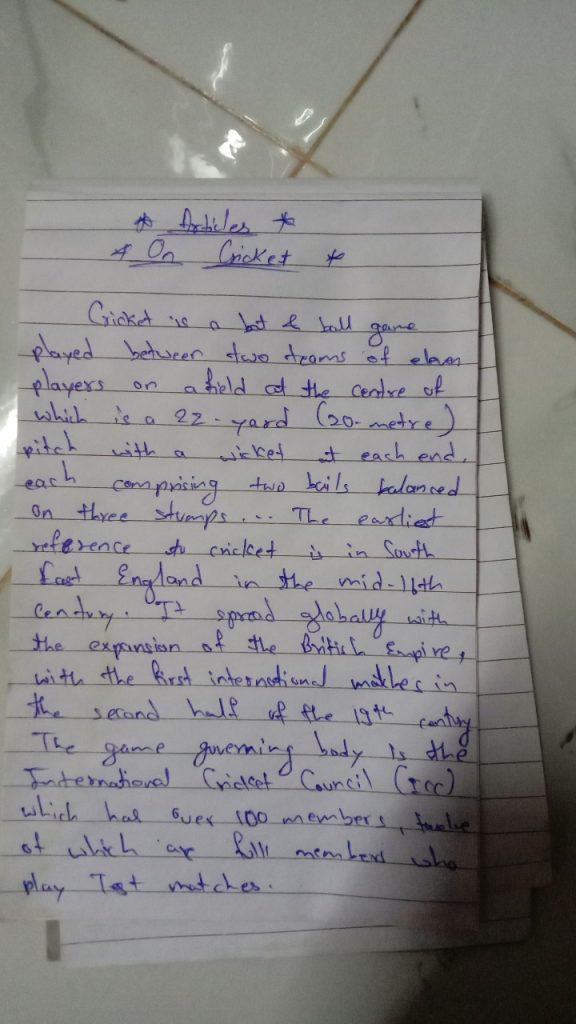 * Articles *
* On Cricket *
Cricket is a bat & ball game
played between two teams of eleven
players on a field at the centre of
which is a 22-yard (20-metre)
pitch with a wicket at each end,
each comprising two bails balanced
on three stumps.... The earliest
reference to cricket is in South
East England in the mid-16th
century. It spread globally with
the expansion of the British Empire,
with the first international matches in
the second half of the 19th century
The game governing body is the
International Cricket Council (ICC)
which has over 100 members, twelve
of which are full members who
play Test matches.